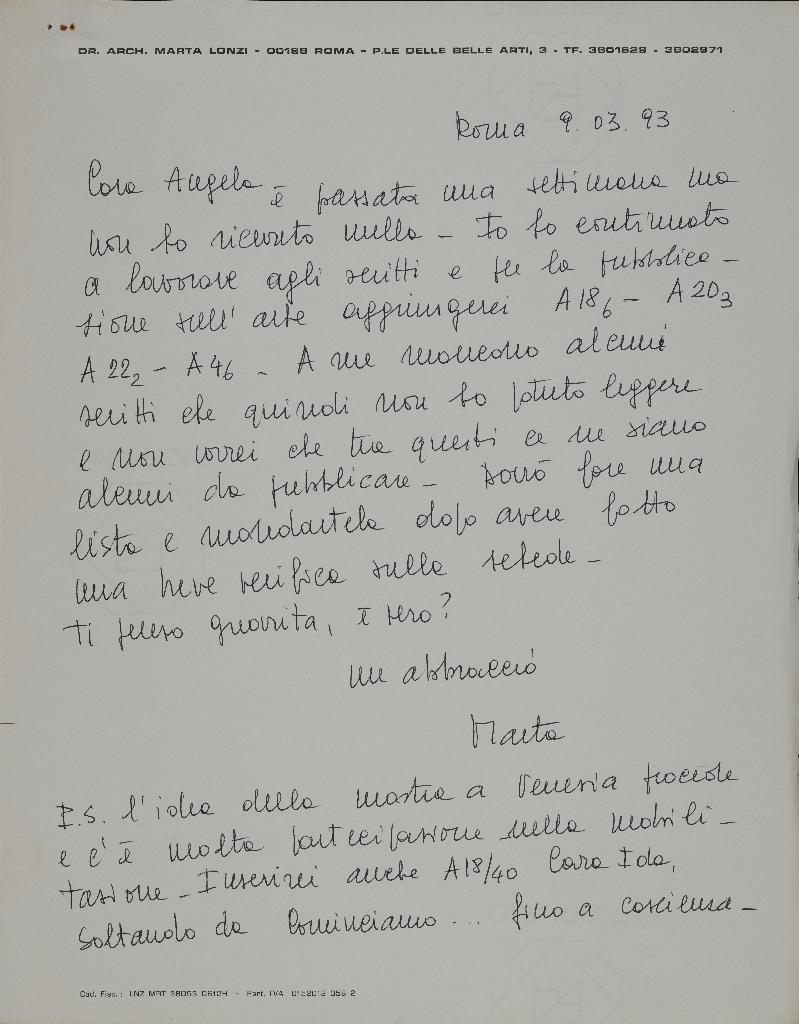 DR. ARCH. MARTA LONZI - 00196 ROMA - P.LE DELLE BELLE ARTI, 3 - TF. 3601629 - 3602971
Roma 9. 03. 93
Cara Angela è passata una settimana ma
non ho ricevuto nulla - Io ho continuato
a lavorare agli scritti e per la pubblica-
zione sull' arte aggiungerei A 18 6 - A 20 3
A 22 2 - A 46 - A me mancano alcuni
scritti che quindi non ho potuto leggere
e non vorrei che tra questi ce ne siano
alcuni da pubblicare - Dovrò fare una
lista e mandartela dopo avere fatto
una breve verifica sulle schede -
Ti penso guarita, è vero?
un abbraccio
Marta
P.S. l'idea della mostra a Venezia procede
e c'è molta partecipazione nella mobili-
tazione - Inserirei anche A18/40 Cara Ida,
Soltando da Cominciamo ... fino a coscienza -
Cod. Fisc.: LNZ MRT 38053 D612H - Part. IVA